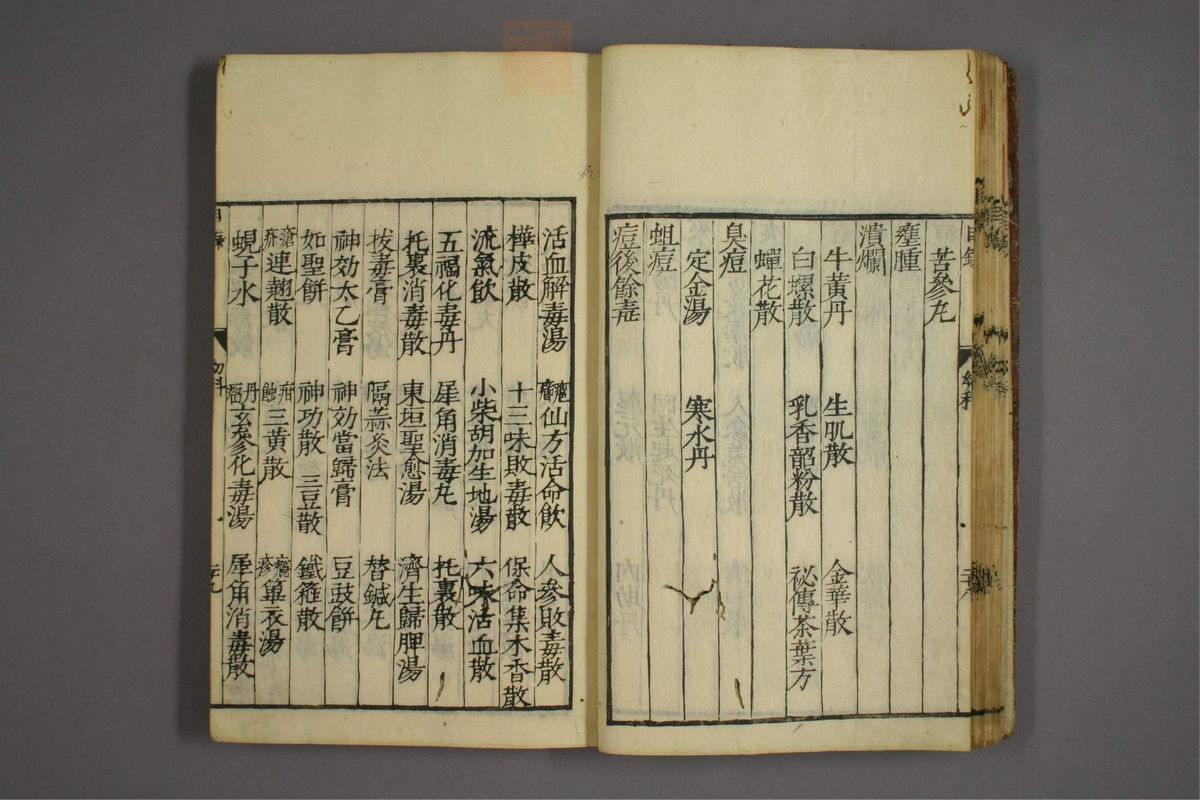 目錄 幼科
苦參丸
壅腫
潰爛
牛黃丹 生肌散 金華散
白螺散 乳香韶粉散 祕傳茶葉方
蟬花散
臭痘
定金湯 寒水丹
蛆痘
痘後餘毒
活血解毒湯 癰 仙方活命飲 人參敗毒散
樺皮散 十三味敗毒散 保命集木香散
流氣飲 小柴胡加生地湯 六味活血散
五福化毒丹 犀角消毒丸 托裏散
托裏消毒散 東垣聖愈湯 濟生歸脾湯
拔毒膏 隔蒜灸法 替鍼丸
神効太乙膏 神効當歸膏 豆豉餅
如聖餅 神功散 三豆散 鐵箍散
瘡疥連翹散 疳蝕三黃散 癮疹篳衣湯
蜆子水 丹瘤玄參化毒湯 犀角消毒散
目錄 幼科 二九